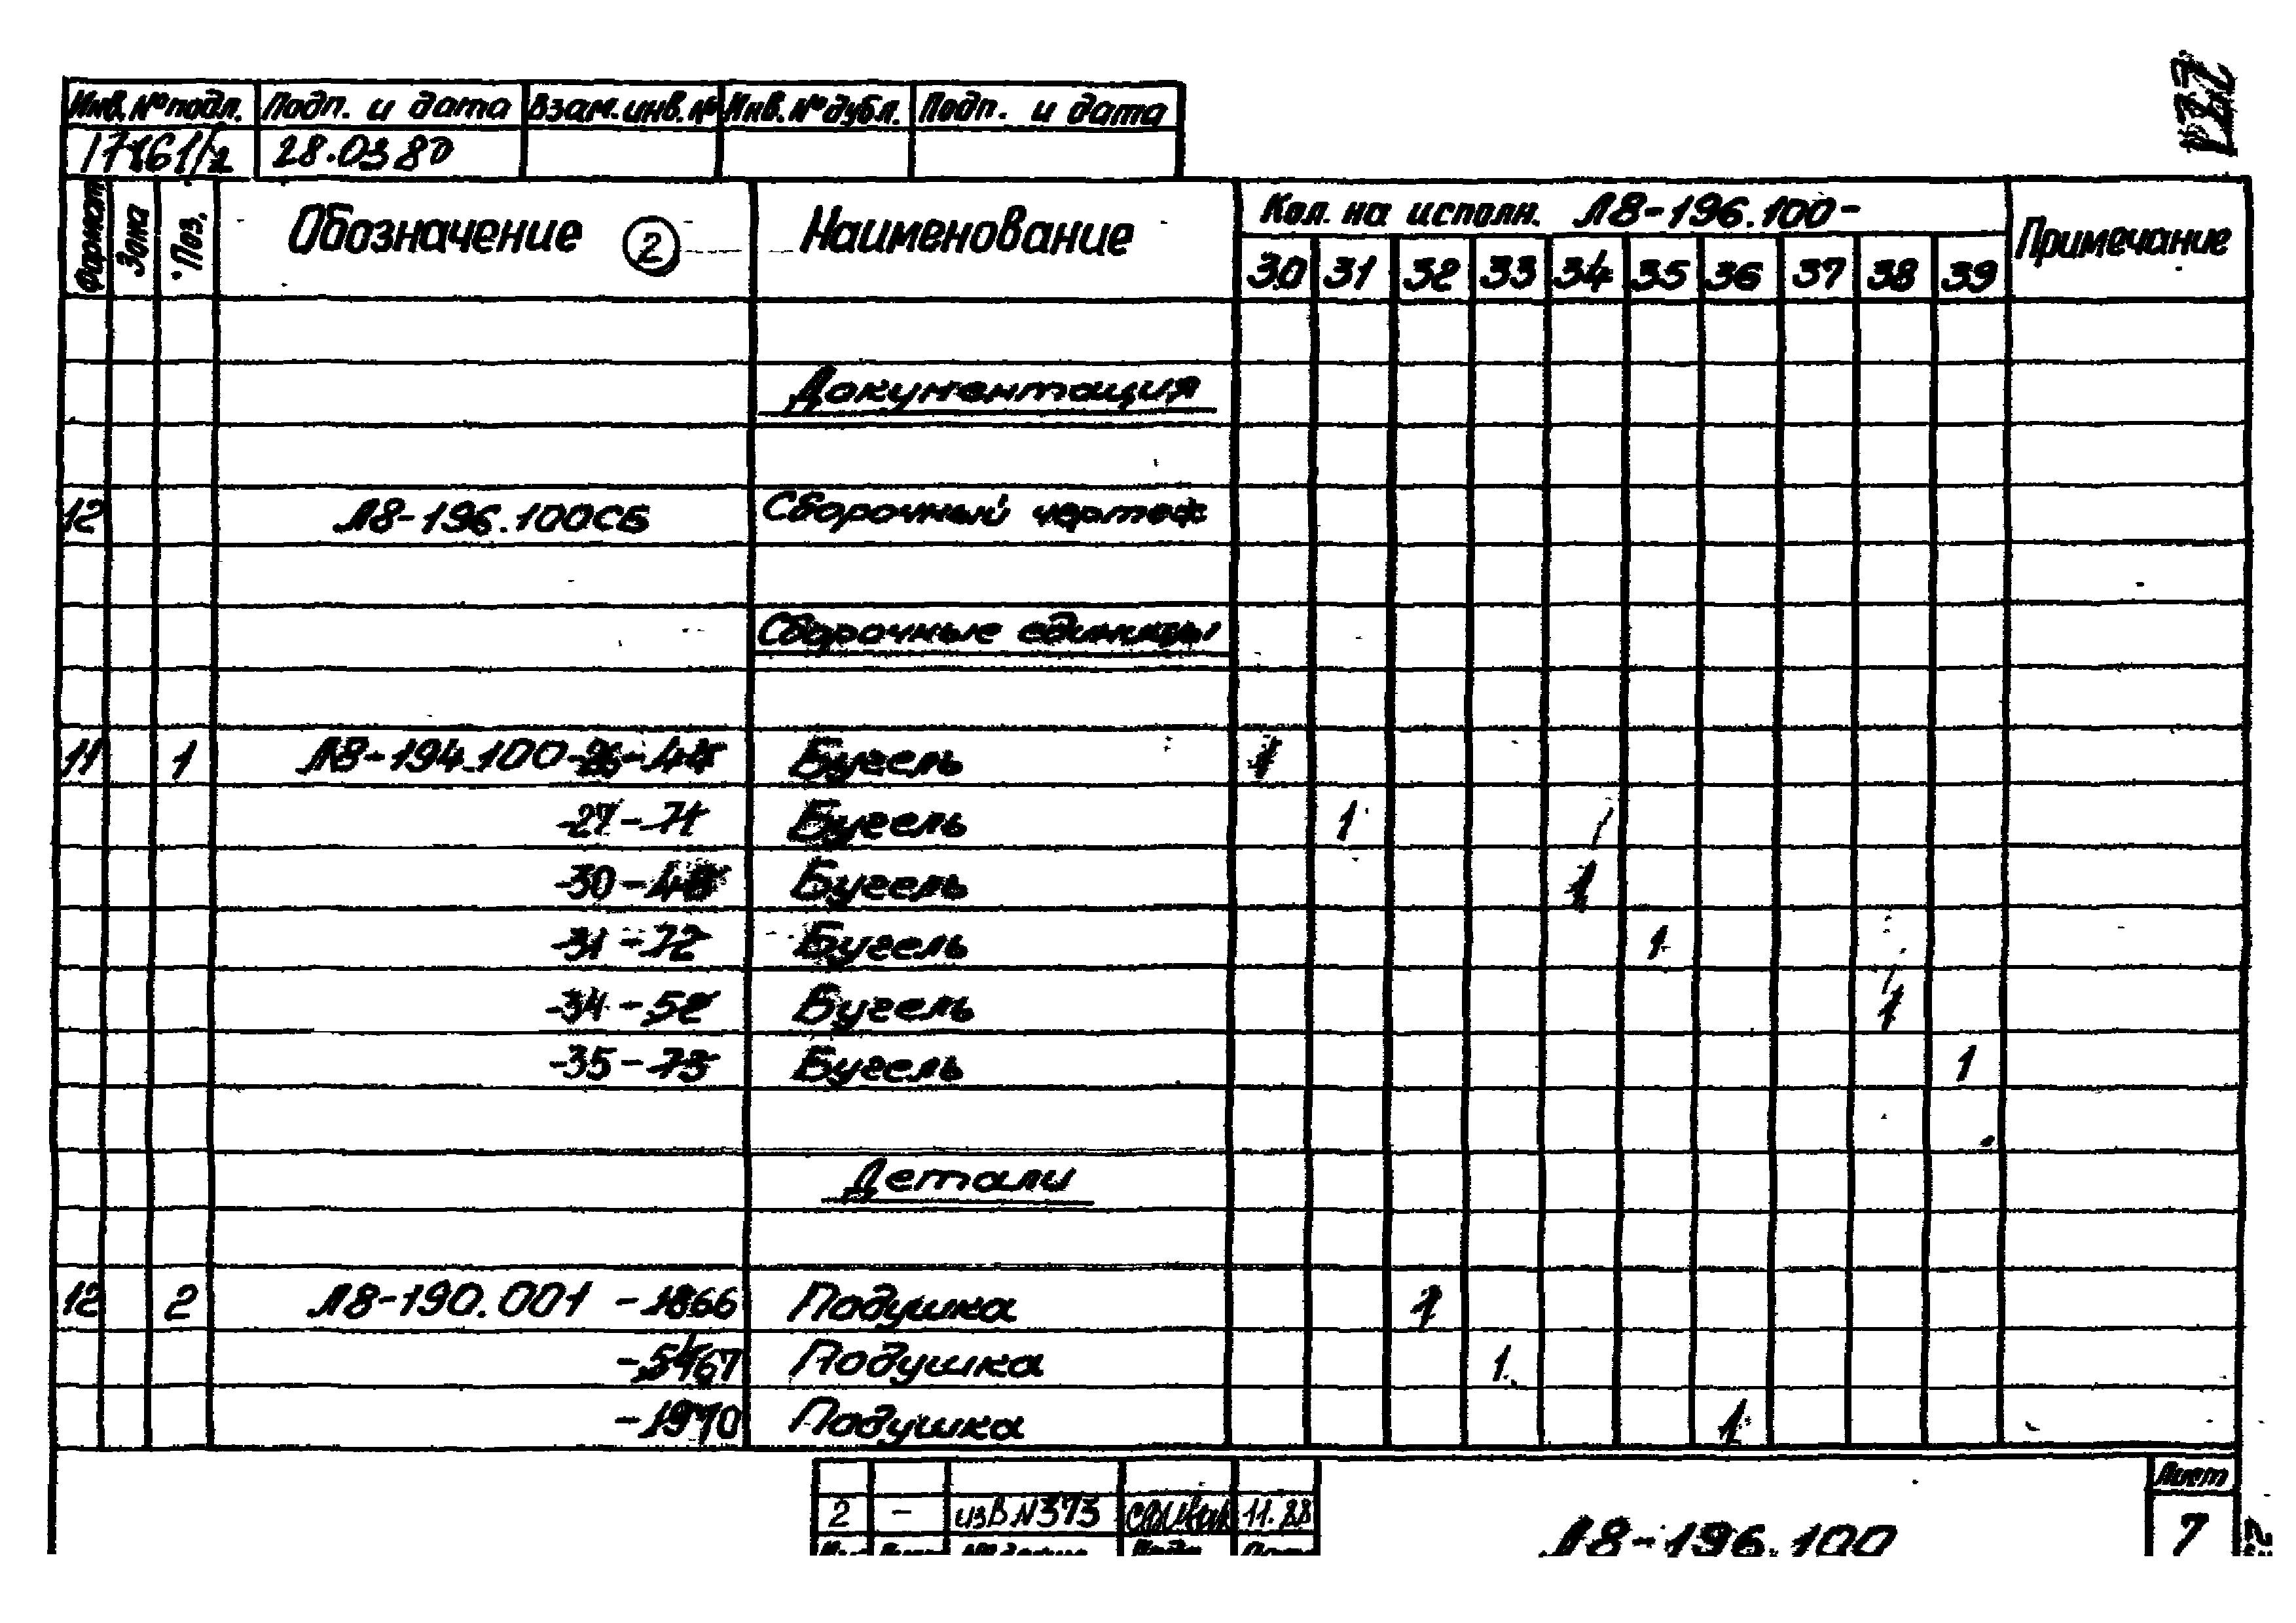 Инв.№подл. Подп. и дата Взам.инв.№ Инв.№дубл. Подп. и дата
28.03 80
Формат Зона Поз. Обозначение 2 Наименование Кол. на исполн. Л8-196.100- Примечание
30 31 32 33 34 35 36 37 38 39
Документация
12 Л8-196.100СБ Сборочный чертеж
Сборочные единицы
11 1 Л8-194.100-26- Бугель 1
-27-71 Бугель 1
-30-48 Бугель 1
-31-72 Бугель 1
-34-52 Бугель 1
-35-73 Бугель 1
Детали
12 2 Л8-190.001 -1866 Подушка 1
-5467 Подушка 1
-1970 Подушка 1
Лист
2 - изв N373 11.88
Л8-196.100 7